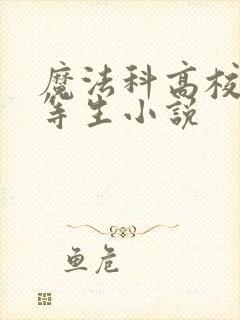 魔法科高校
等生小説
鱼危